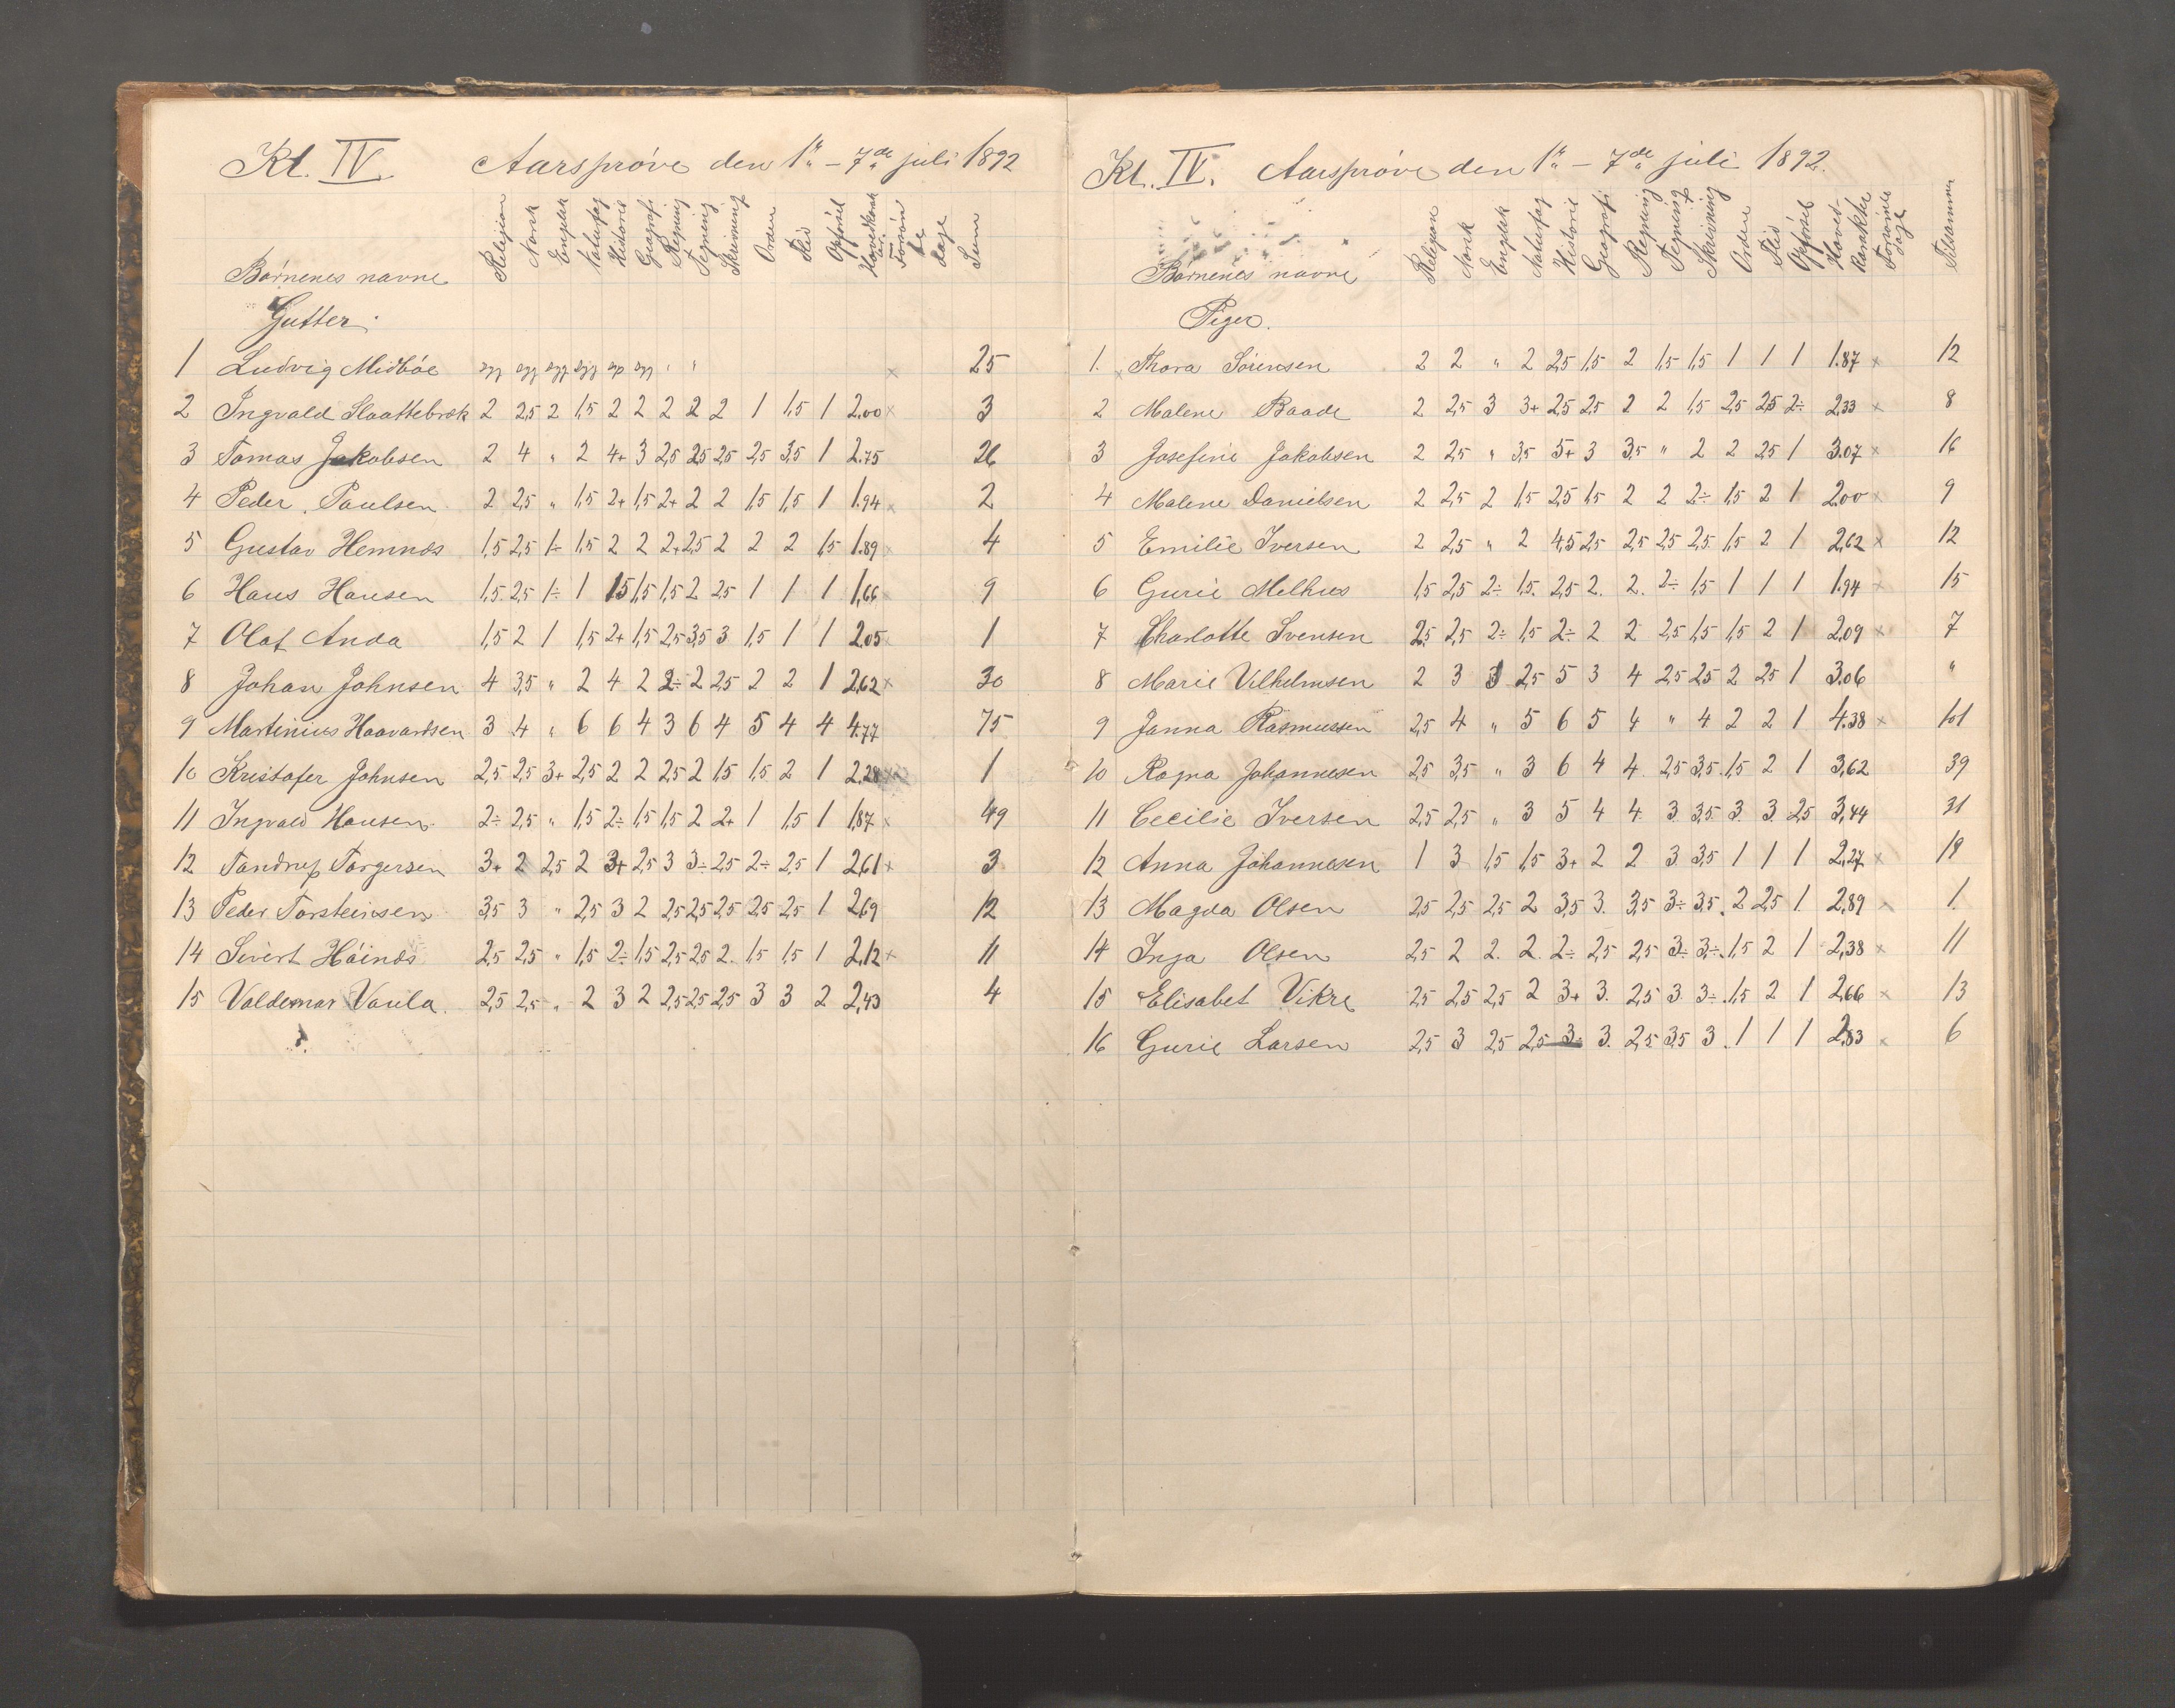 Kl. IV. Aarsprøve den 1ste – 7de juli 1892
Børnenes navne Religion Norsk Engelsk Naturfag Historie Geografi Regning Tegning Skrivning Orden Flid Opførsel Hovedkarakter Forsømte dage Sum
Gutter.
1 Ludvig Midbøe syg syg syg syg syg syg " " × 25
2 Ingvald Slaattebræk 2 2,5 2 1,5 2 2 2 2 2 1 1,5 1 2.00 × 3
3 Tomas Jakobsen 2 4 " 2 4+ 3 2,5 2,5 2,5 2,5 3,5 1 2.75 26
4 Peder Paulsen 2 2,5 " 1,5 2+ 1,5 2+ 2 2 1,5 1,5 1 1.94 × 2
5 Gustav Hemnes 1,5 2,5 1÷ 1,5 2 2 2+ 2,5 2 2 2 1,5 1.89 × 4
6 Hans Hansen 1,5 2,5 1÷ 1 1,5 1,5 1,5 2 2,5 1 1 1 1,66 × 9
7 Olaf Anda 1,5 2 1 1,5 2+ 1,5 2,5 3,5 3 1,5 1 1 2.05 1
8 Johan Johnsen 4 3,5 " 2 4 2 2÷ 2 2,5 2 2 1 2,62 × 30
9 Martinius Haavardsen 3 4 " 6 6 4 3 6 4 5 4 4 4.77 75
10 Kristofer Johnsen 2,5 2,5 3+ 2,5 2 2 2,5 2 1,5 1,5 2 1 2.28 × 1
11 Ingvald Hansen 2÷ 2,5 " 1,5 2÷ 1,5 1,5 2 2+ 1 1,5 1 1,87 × 49
12 Tandrup Torgersen 3+ 2 2,5 2 3+ 2,5 3 3÷ 2,5 2÷ 2,5 1 2,61 × 3
13 Peder Torsteinsen 3,5 3 " 2,5 3 2 2,5 2,5 2,5 2,5 2,5 1 2,69 12
14 Sivert Høines 2,5 2,5 " 1,5 2÷ 1,5 2,5 2,5 2. 1,5 1,5 1 2,12 × 11
15 Valdemar Vaula. 2,5 2,5 " 2 3 2 2,5 2,5 2,5 3 3 2 2,43 4
Kl. IV. Aarsprøve den 1ste – 7de juli 1892.
Børnenes navne Religion Norsk Engelsk Naturfag Historie Geografi Regning Tegning Skrivning Orden Flid Opførsel Hovedkarakter Forsømte dage Tilsammen
Piger.
1. × Thora Sørensen 2 2 " 2 2,5 1,5 2 1,5 1,5 1 1 1 1.87 × 12
2 Malene Baade 2 2,5 3 3+ 2,5 2,5 2 2 1,5 2,5 2,5 2÷ 2,33 × 8
3 Josefine Jakobsen 2 2,5 " 3,5 5+ 3 3,5 " 2 2 2,5 1 3.07 × 16
4 Malene Danielsen 2 2,5 2 1,5 2,5 1,5 2 2 2÷ 1,5 2 1 2.00 × 9
5 Emilie Iversen 2 2,5 " 2 4,5 2,5 2,5 2,5 2,5 1,5 2 1 2,62 × 12
6 Gurie Melhus 1,5 2,5 2÷ 1,5. 2,5 2. 2. 2÷ 1,5 1 1 1 1.94 × 15
7 Charlotte Svensen 2,5 2,5 2÷ 1,5 2÷ 2 2 2,5 1,5 1,5 2 1 2,09 × 7
8 Marie Vilhelmsen 2 3 3 2,5 5 3 4 2,5 2,5 2 2,5 1 3.06 "
9 Janna Rasmussen 2,5 4 " 5 6 5 4 " 4 2 2 1 4.38 × 101
10 Ragna Johannesen 2,5 3,5 " 3 6 4 4. 2,5 3,5 1,5 2 1 3,62 39
11 Cecilie Iversen 2,5 2,5 " 3 5 4 4 3 3,5 3. 3. 2,5 3,44 31
12 Anna Johannesen 1 3 1,5 1,5 3+ 2 2 3 3,5 1 1 1 2,27 × 19
13 Magda Olsen 2,5 2,5 2,5 2 3,5 3. 3,5 3÷ 3,5. 2 2,5 1. 2,89 × 1.
14 Inga Olsen 2,5 2 2. 2. 2÷ 2,5 2,5 3÷ 3÷ 1,5 2 1 2,38 × 11
15 Elisabet Vikre 2,5 2,5 2,5 2 3+ 3. 2,5 3 3÷ 1,5 2 1 2,66 × 13
16 Gurie Larsen 2,5 3 2,5 2,5 3÷ 3. 2,5 3,5 3 1 1 1 2,83 × 6